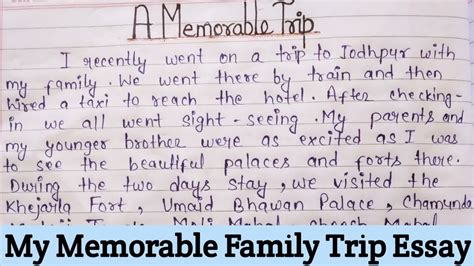 A Memorable Trip
I recently went on a trip to Jodhpur with
my family. We went there by train and then
hired a taxi to reach the hotel. After checking-
in we all went sight-seeing. My parents and
my younger brother were as excited as I was
to see the beautiful palaces and forts there.
During the two days stay, we visited the
Khejarla Fort, Umaid Bhawan Palace, Chamunda
My Memorable Family Trip Essay